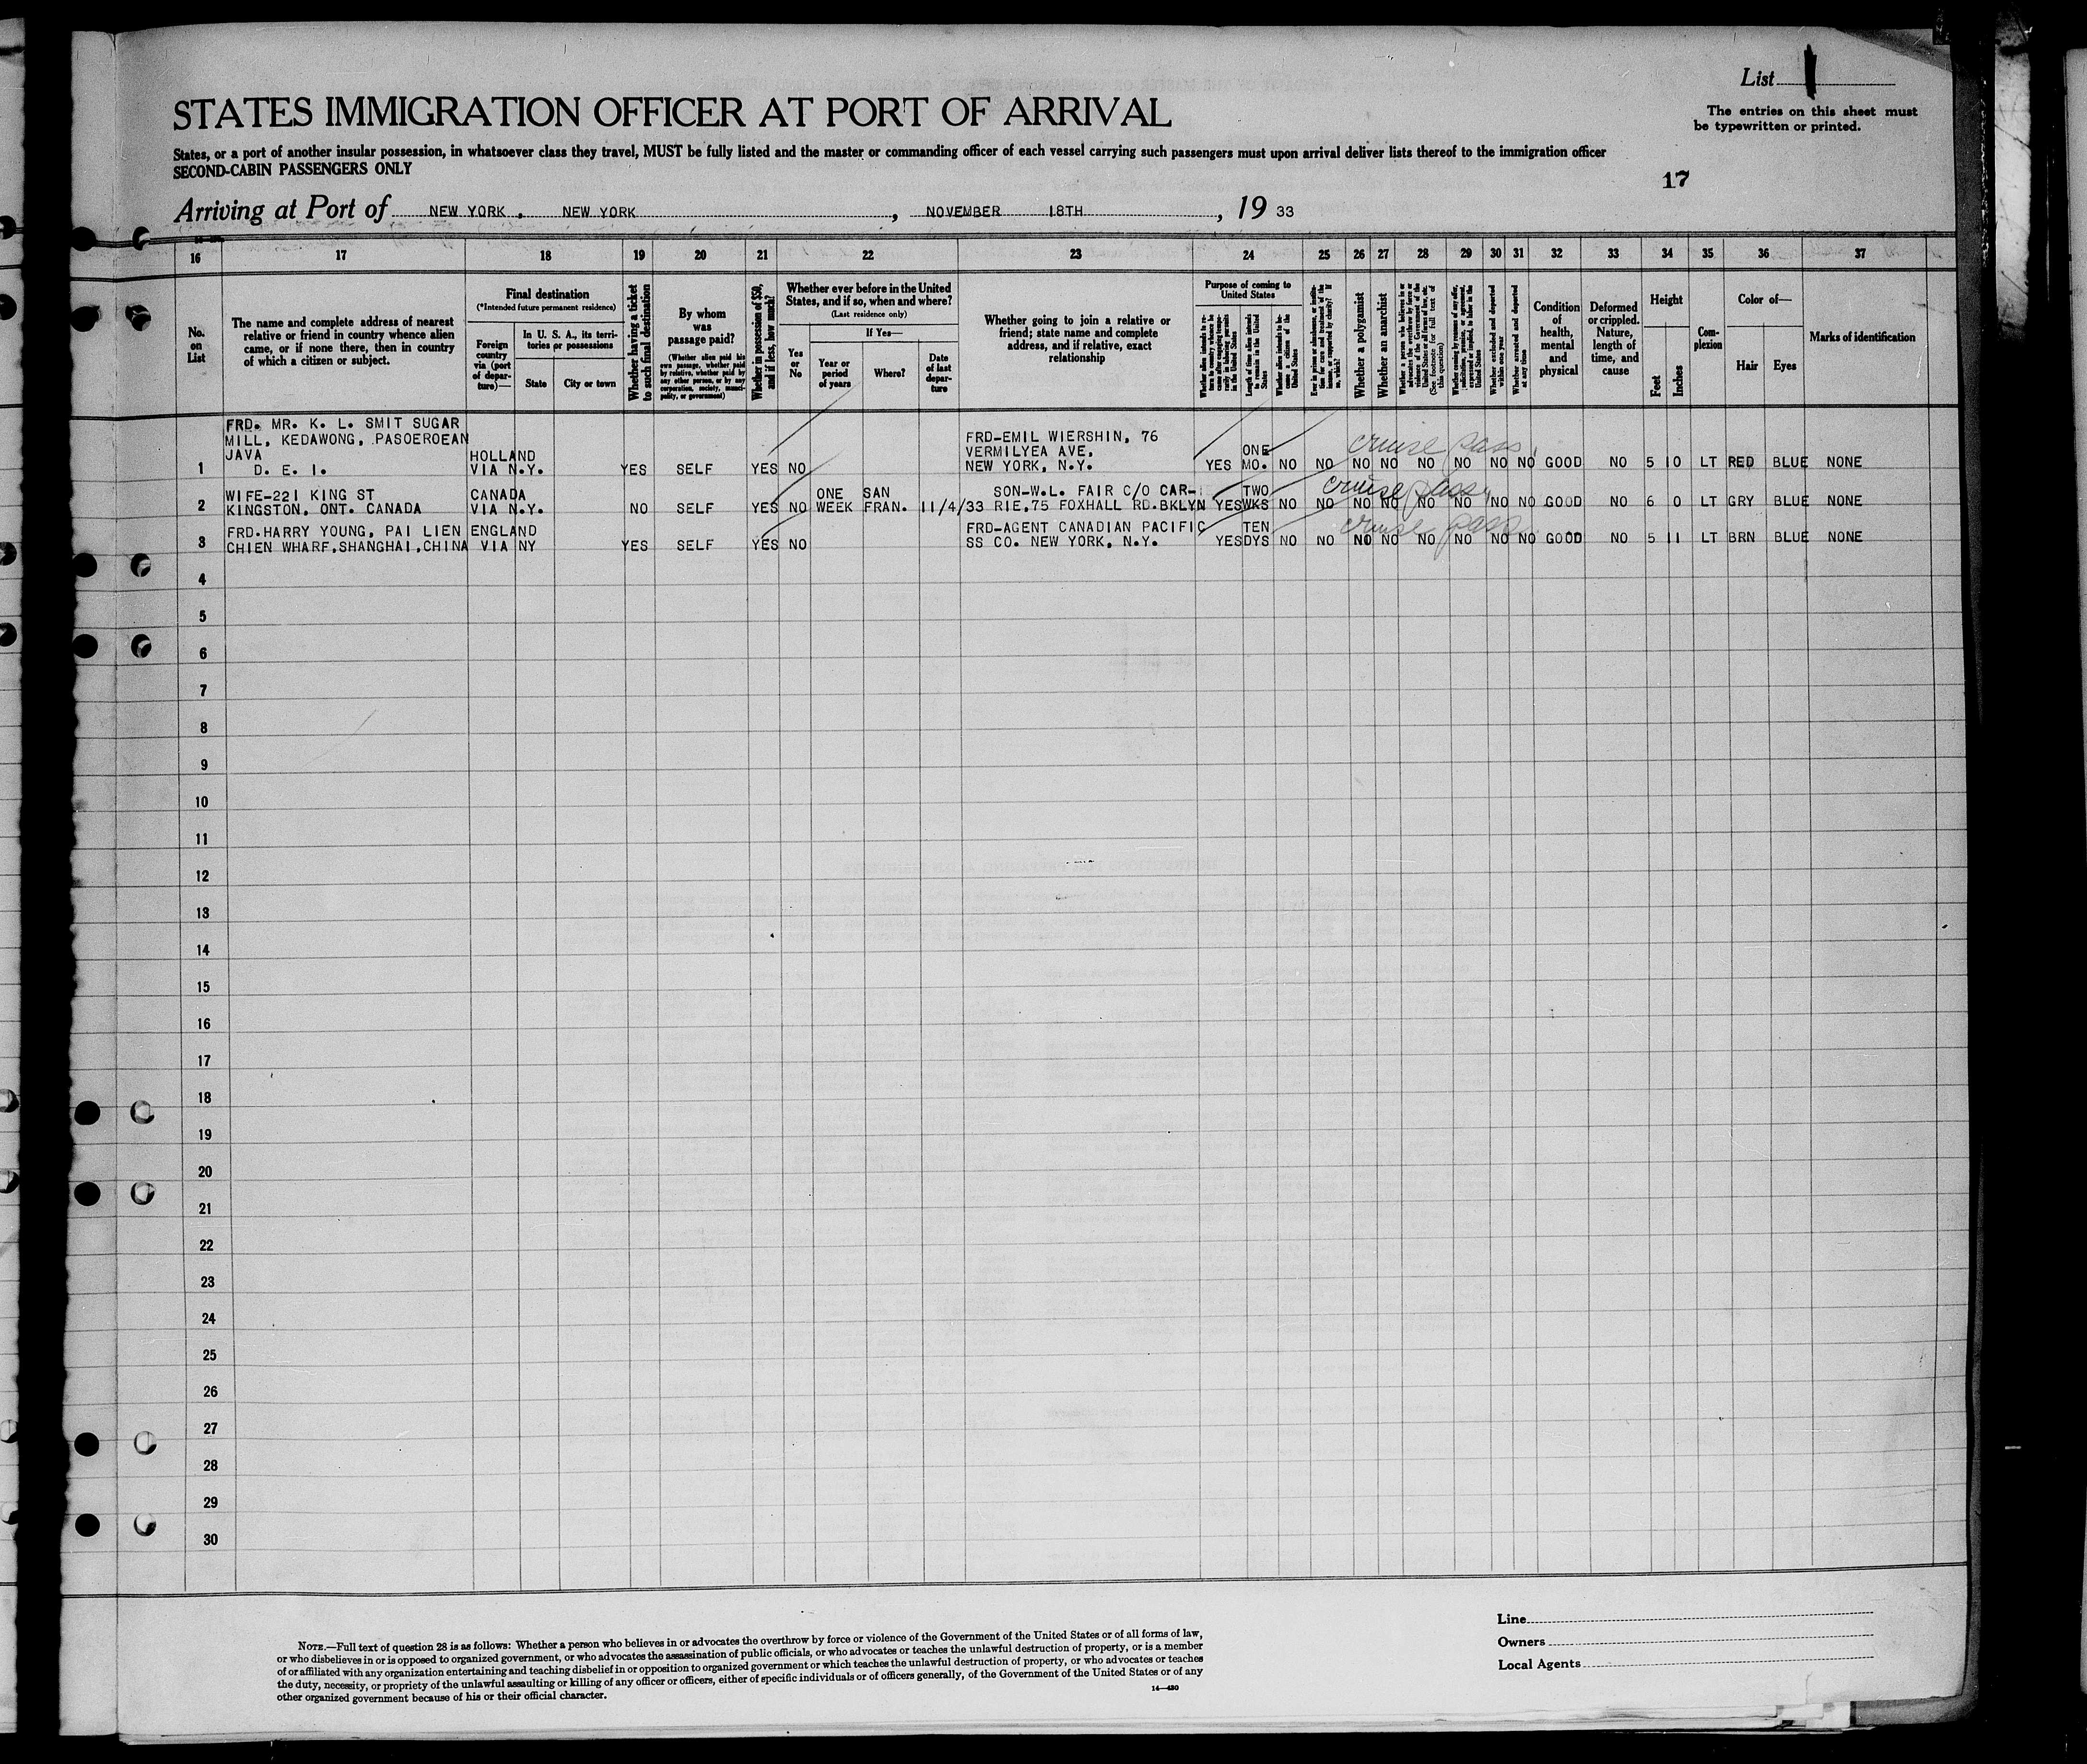 List 1
The entries on this sheet must
be typewritten or printed.
STATES IMMIGRATION OFFICER AT PORT OF ARRIVAL
States, or a port of another insular possession, in whatsoever class they travel, MUST be fully listed and the master or commanding officer of each vessel carrying such passengers must upon arrival deliver lists thereof to the immigration officer
SECOND-CABIN PASSENGERS ONLY
17
Arriving at Port of NEW YORK, NEW YORK, NOVEMBER 18TH, 19 33
16 17 18 19 20 21 22 23 24 25 26 27 28 29 30 31 32 33 34 35 36 37
No.
on
List
The name and complete address of nearest
relative or friend in country whence alien
came, or if none there, then in country
of which a citizen or subject.
Final destination
(*Intended future permanent residence)
Foreign
country
via (port
of depar-
ture)—
In U. S. A., its terri-
tories or possessions
State
City or town
Whether having a ticket
to such final destination
By whom
was
passage paid?
(Whether alien paid his
own passage, whether paid
by relative, whether paid by
any other person, or by any
corporation, society, munici-
pality, or government)
Whether in possession of $50,
and if less, how much?
Whether ever before in the United
States, and if so, when and where?
(Last residence only)
Yes
or
No
If Yes—
Year or
period
of years
Where?
Date
of last
depar-
ture
Whether going to join a relative or
friend; state name and complete
address, and if relative, exact
relationship
Purpose of coming to
United States
Length of time alien intends
to remain in the United
States
Whether alien intends to be-
come a citizen of the
United States
Whether a polygamist
Whether an anarchist
Whether excluded and deported
within one year
Whether arrested and deported
at any time
Condition
of
health,
mental
and
physical
Deformed
or crippled.
Nature,
length of
time, and
cause
Height
Feet
Inches
Com-
plexion
Color of—
Hair
Eyes
Marks of identification
FRD. MR. K. L. SMIT SUGAR
MILL, KEDAWONG, PASOEROEAN
JAVA
D. E. I.
1
HOLLAND
VIA N.Y.
YES SELF YES NO
FRD-EMIL WIERSHIN, 76
VERMILYEA AVE,
NEW YORK, N.Y.
YES
ONE
MO.
NO NO NO NO NO NO NO NO GOOD NO 5 10 LT RED BLUE NONE
cruise pass
2
WIFE-221 KING ST
KINGSTON, ONT. CANADA
CANADA
VIA N.Y.
NO SELF YES NO
ONE
WEEK
SAN
FRAN.
11/4/33
SON-W.L. FAIR C/O CAR-
RIE,75 FOXHALL RD.BKLYN
YES
TWO
WKS
NO NO NO NO NO NO NO NO GOOD NO 6 0 LT GRY BLUE NONE
cruise pass
3
FRD.HARRY YOUNG, PAI LIEN
CHIEN WHARF,SHANGHAI,CHINA
ENGLAND
VIA NY
YES SELF YES NO
FRD-AGENT CANADIAN PACIFIC
SS CO. NEW YORK, N.Y.
YES
TEN
DYS
NO NO NO NO NO NO NO NO GOOD NO 5 11 LT BRN BLUE NONE
cruise pass
4
5
6
7
8
9
10
11
12
13
14
15
16
17
18
19
20
21
22
23
24
25
26
27
28
29
30
NOTE.—Full text of question 28 is as follows: Whether a person who believes in or advocates the overthrow by force or violence of the Government of the United States or of all forms of law,
or who disbelieves in or is opposed to organized government, or who advocates the assassination of public officials, or who advocates or teaches the unlawful destruction of property, or is a member
of or affiliated with any organization entertaining and teaching disbelief in or opposition to organized government or which teaches the unlawful destruction of property, or who advocates or teaches
the duty, necessity, or propriety of the unlawful assaulting or killing of any officer or officers, either of specific individuals or of officers generally, of the Government of the United States or of any
other organized government because of his or their official character.
14—430
Line
Owners
Local Agents